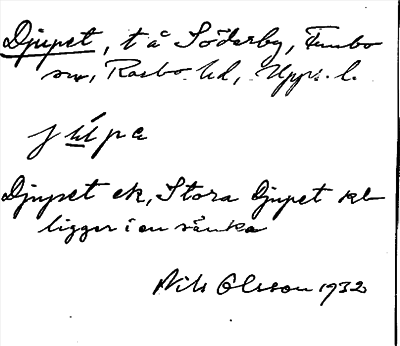 Djupet, t å Söderby, Funbo
sn, Rasbo hd, Upps. l.
júpe
Djupet ek, Stora Djupet kl
ligger i en sänka
Nils Olsson 1932